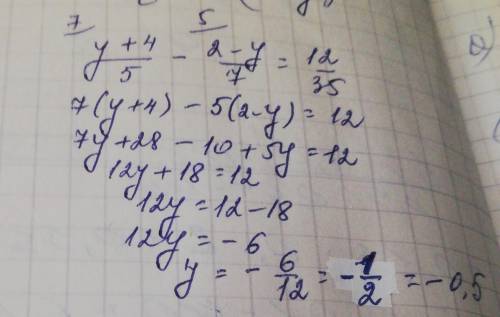 7 5
(y + 4)/5 - (2 - y)/7 = 12/35
7(y+4) - 5(2-y) = 12
7y + 28 - 10 + 5y = 12
12y + 18 = 12
12y = 12 - 18
12y = - 6
y = - 6/12 = - 1/2 = - 0,5